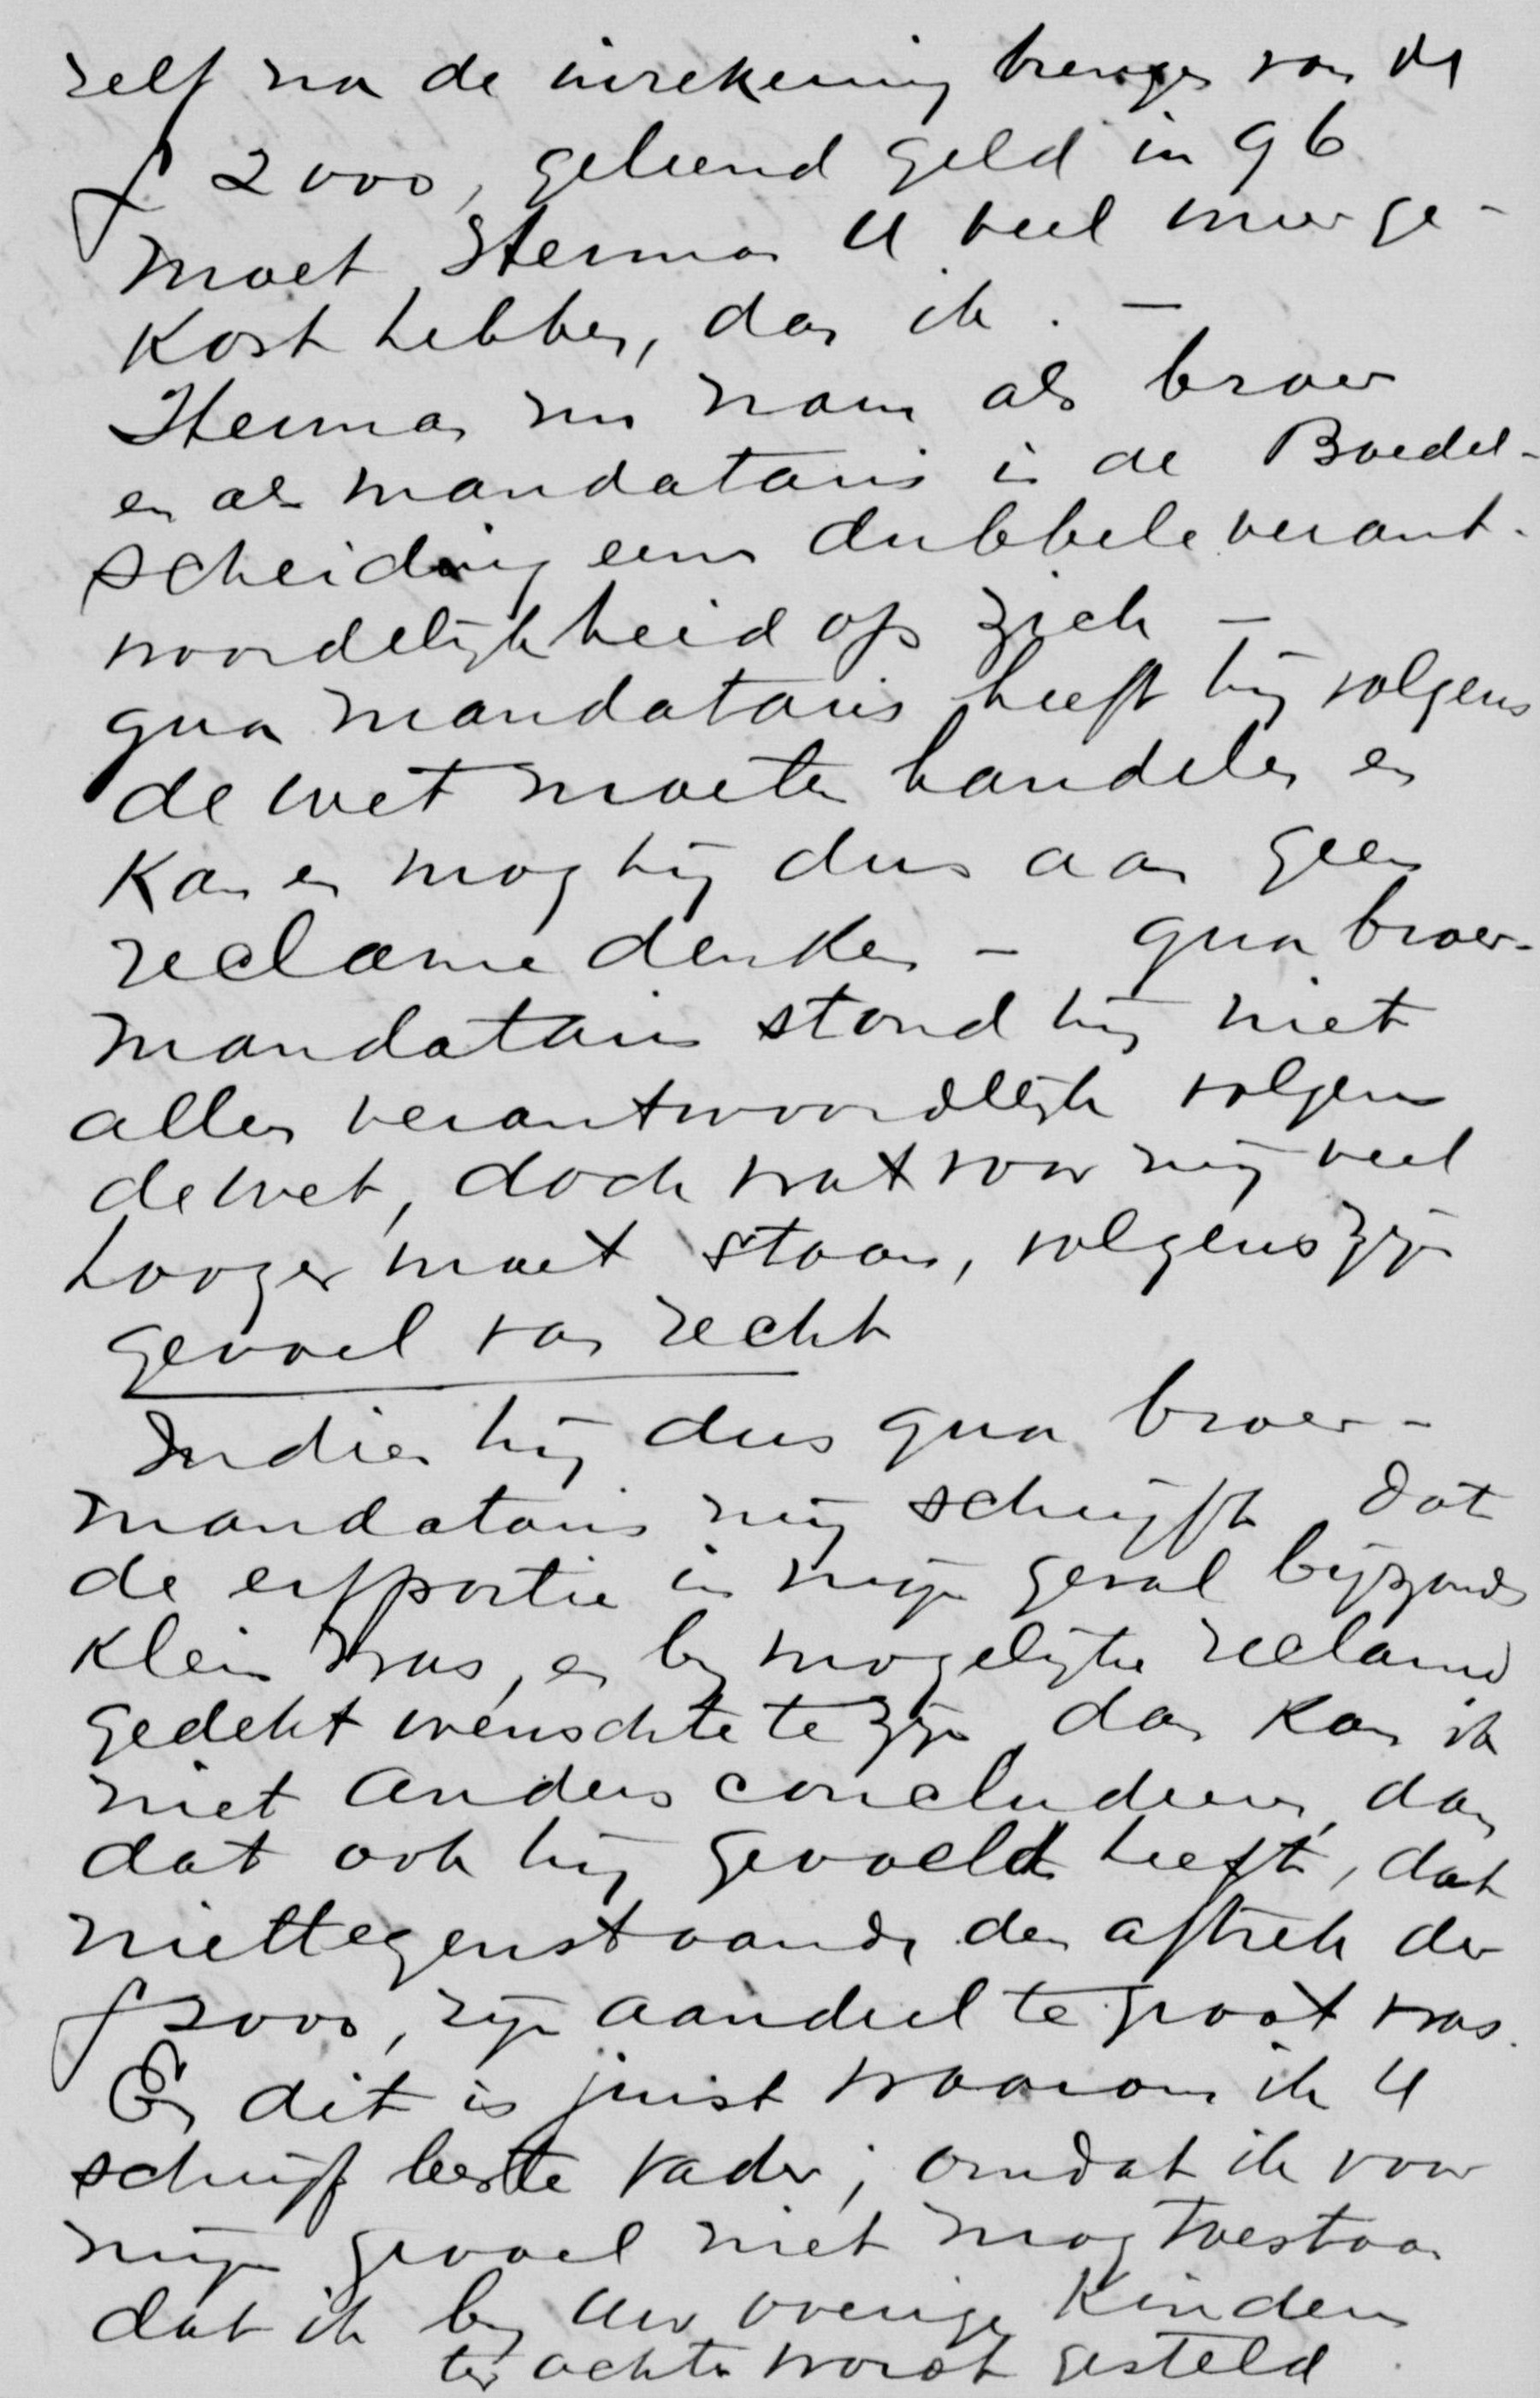 zelf na de inrekening brengen van de
ƒ 2000, geleend geld in 96
moet Herman U veel meer ge-
kost hebben, dan ik. —
Herman nu nam als broer
en als mandataris in de Boedel-
scheiding eene dubbele verant-
woordelijkheid op zich —
qua mandataris heeft hij volgens
de wet moeten handelen en
kan en mag hij dus aan geen
reclame denken – qua broer-
mandataris stond hij niet
alleen verantwoordelijk volgens
de wet, doch wat voor mij veel
hooger moet staan, volgens zijn
gevoel van recht
Indien hij dus qua broer-
mandataris mij schrijft dat
de erfportie in mijn geval bijzonder
klein was, en bij mogelijke reclame
gedekt wenschte te zijn dan kan ik
niet anders concludeeren, dan
dat ook hij gevoeld heeft, dat
niettegenstaande den aftrek der
ƒ 2000, zijn aandeel te groot was.
En dit is juist waarom ik U
schrijf beste Vader; omdat ik voor
mijn gevoel niet mag toestaan
dat ik bij Uw overige Kinderen
ten achter wordt gesteld.